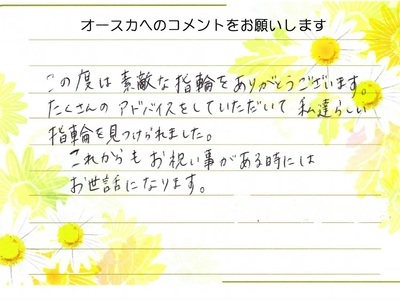 オースカへのコメントをお願いします
この度は素敵な指輪をありがとうございます。
たくさんのアドバイスをしていただいて私達らしい
指輪を見つけられました。
これからもお祝い事がある時には
お世話になります。